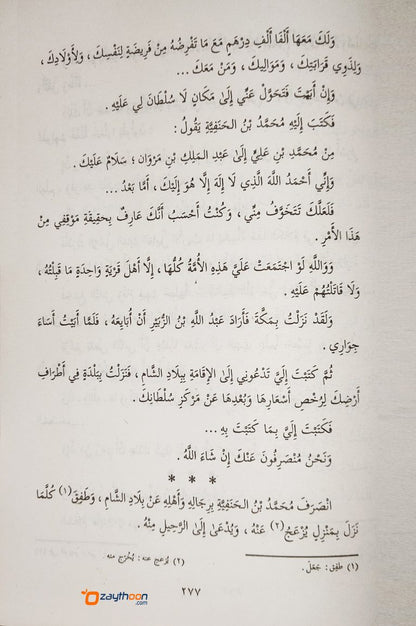 وَلَكَ مَعَهَا أَلْفَا أَلْفِ دِرْهَمٍ مَعَ مَا تَفْرِضُهُ مِنْ فَرِيضَةٍ لِنَفْسِكَ ، وَلِأَوْلَادِكَ ،
وَلِذَوِي قَرَابَتِكَ ، وَمَوَالِيكَ ، وَمَنْ مَعَكَ ...
وَإِنْ أَبَيْتَ فَتَحَوَّلْ عَنِّي إِلَىٰ مَكَانٍ لَا سُلْطَانَ لِي عَلَيْهِ .
فَكَتَبَ إِلَيْهِ مُحَمَّدُ بْنُ الحَنَفِيَّةِ يَقُولُ :
مِنْ مُحَمَّدِ بْنِ عَلِيٍّ إِلَىٰ عَبْدِ المَلِكِ بْنِ مَرْوَانَ ؛ سَلَامٌ عَلَيْكَ .
وَإِنِّي أَحْمَدُ اللَّهَ الَّذِي لَا إِلَهَ إِلَّا هُوَ إِلَيْكَ ، أَمَّا بَعْدُ ...
فَلَعَلَّكَ تَتَخَوَّفُ مِنِّي ، وَكُنْتُ أَحْسَبُ أَنَّكَ عَارِفٌ بِحَقِيقَةِ مَوْقِفِي مِنْ
هَذَا الأَمْرِ .
وَوَاللَّهِ لَوِ اجْتَمَعَتْ عَلَيَّ هَذِهِ الأُمَّةُ كُلُّهَا ، إِلَّا أَهْلَ قَرْيَةٍ وَاحِدَةٍ مَا قَبِلْتُهُ ،
وَلَا قَاتَلْتُهُمْ عَلَيْهِ .
وَلَقَدْ نَزَلْتُ بِمَكَّةَ فَأَرَادَ عَبْدُ اللَّهِ بْنُ الزُّبَيْرِ أَنْ أُبَايِعَهُ ، فَلَمَّا أَبَيْتُ أَسَاءَ
جِوَارِي .
ثُمَّ كَتَبْتَ إِلَيَّ تَدْعُونِي إِلَىٰ الإِقَامَةِ بِبِلَادِ الشَّامِ ، فَنَزَلْتُ بِبَلْدَةٍ فِي أَطْرَافِ
أَرْضِكَ لِرُخْصِ أَسْعَارِهَا وَبُعْدِهَا عَنْ مَرْكَزِ سُلْطَانِكَ .
فَكَتَبْتَ إِلَيَّ بِمَا كَتَبْتَ بِهِ ...
وَنَحْنُ مُنْصَرِفُونَ عَنْكَ إِنْ شَاءَ اللَّهُ .
* * *
انْصَرَفَ مُحَمَّدُ بْنُ الحَنَفِيَّةِ بِرِجَالِهِ وَأَهْلِهِ عَنْ بِلَادِ الشَّامِ ، وَطَفِقَ (١) كُلَّمَا
نَزَلَ بِمَنْزِلٍ يُزْعَجُ (٢) عَنْهُ ، وَيُدْعَىٰ إِلَىٰ الرَّحِيلِ مِنْهُ .
(١) طَفِقَ : جَعَلَ . (٢) يُزعج عنه : يُخْرَج منه .
٢٧٧
zaythoon
.com